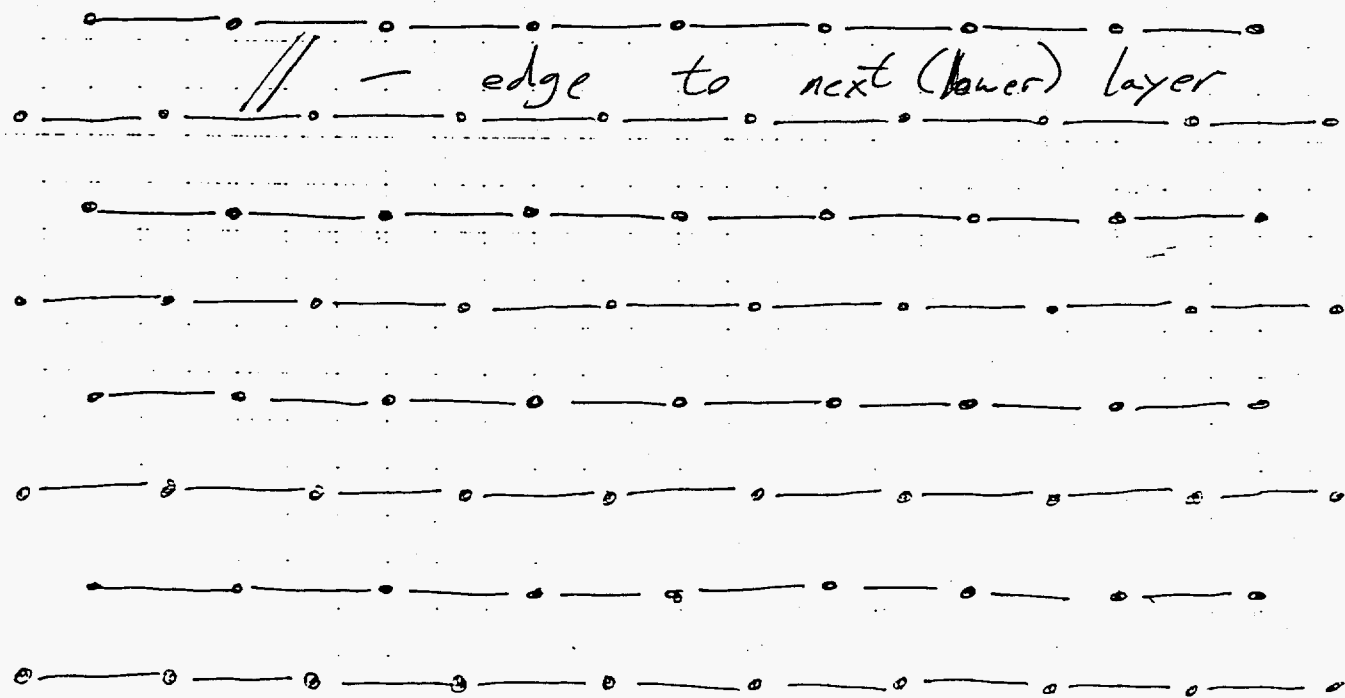 // — edge to next (lower) layer